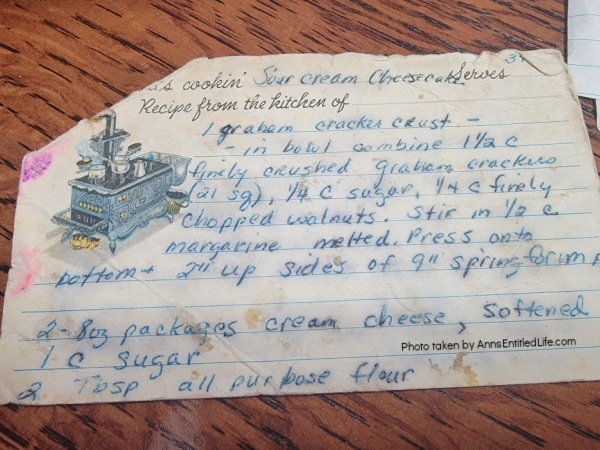 cookin' Sour cream Cheesecake Serves
Recipe from the kitchen of
1 graham cracker crust -
- in bowl combine 1 1/2 c
finely crushed graham crackers
(21 sq), 1/4 c sugar, 1/4 c finely
chopped walnuts. Stir in 1/2 c
margarine melted. Press onto
bottom + 2" up sides of 9" springform
2 - 8oz packages cream cheese, softened
1 c sugar
2 Tbsp all purpose flour
Photo taken by AnnsEntitledLife.com